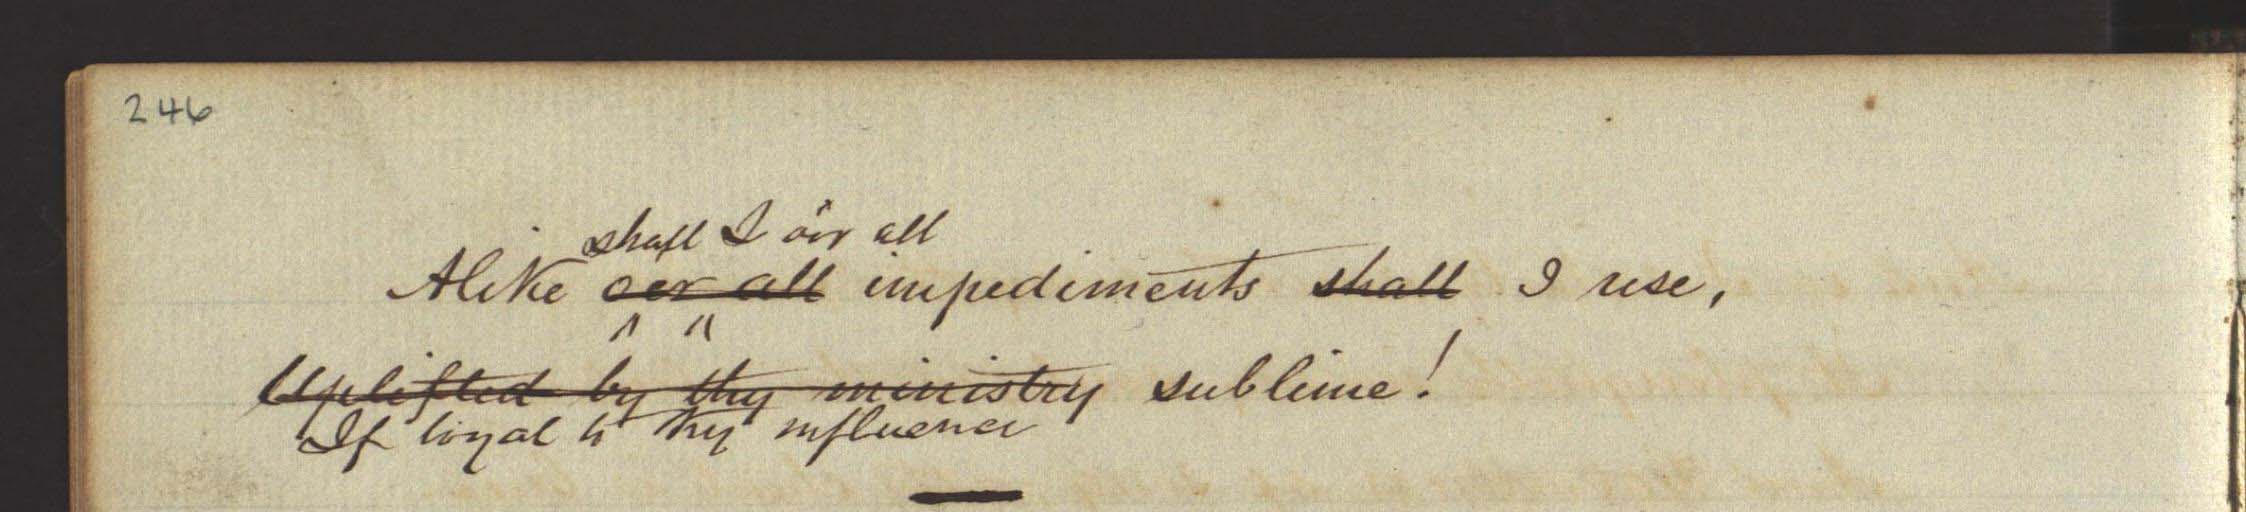 246
shall I o'er all
Alike oer all impediments shall I rise,
Uplifted by thy ministry sublime!
If loyal to thy influence